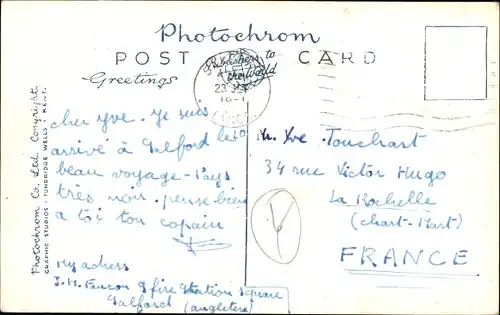 Photochrom
POST CARD
Publishers to
the World
Greetings
23
Cher Yve. Je suis
arrivé à Salford le
beau voyage - Pays
très noir. pense bien
a toi ton copain
My adress
J.M. Faucon fire station square
Salford (angletere)
Mr. Yve Touchart
34 rue Victor Hugo
La Rochelle
(Chart-Mart)
FRANCE
Photochrom Co. Ltd. Copyright.
GRAPHIC STUDIOS · TUNBRIDGE WELLS · KENT.